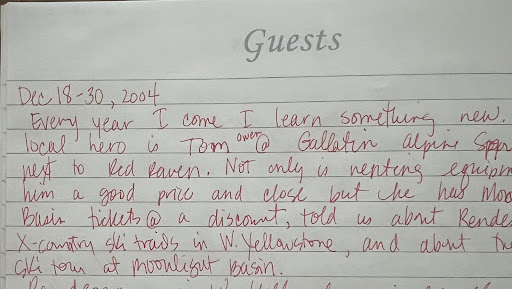 Guests
Dec 18-30, 2004
Every year I come I learn something new.
local hero is Tom owen @ Gallatin alpine
next to Red Raven. Not only is renting
him a good price and close but he has
Basin tickets @ a discount, told us about
X-country ski trails in W. Yellowstone, and about
ski tour at Moonlight Basin.